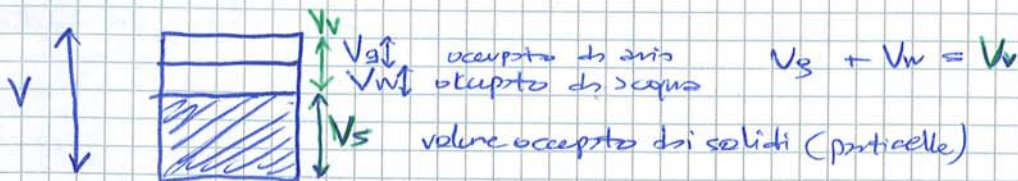 Vv
V Vg occupato da aria Vg + Vw = Vv
Vw occupato da acqua
Vs volume occupato dai solidi (particelle)